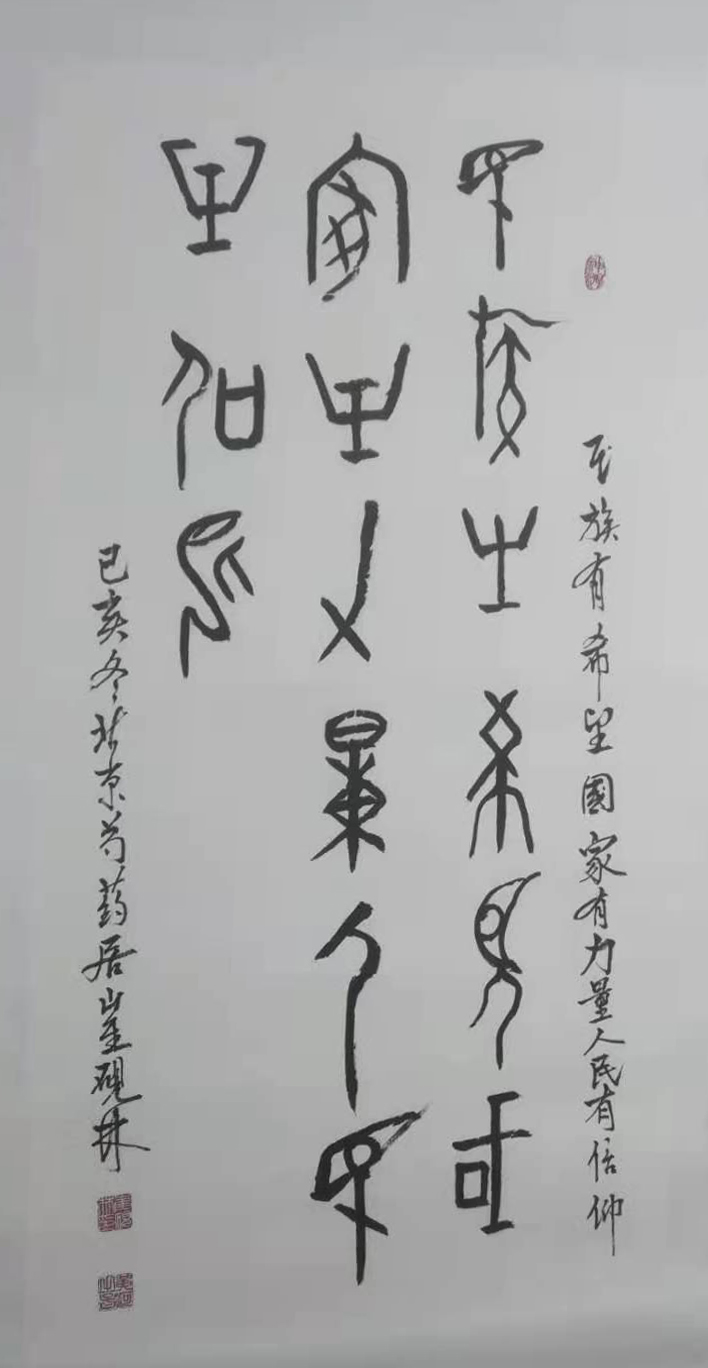 民族有希望國家有力量人民有信仰
民族㞢希望或
家㞢力量人民
㞢信卬
己亥冬北京芍葯居崔硯林